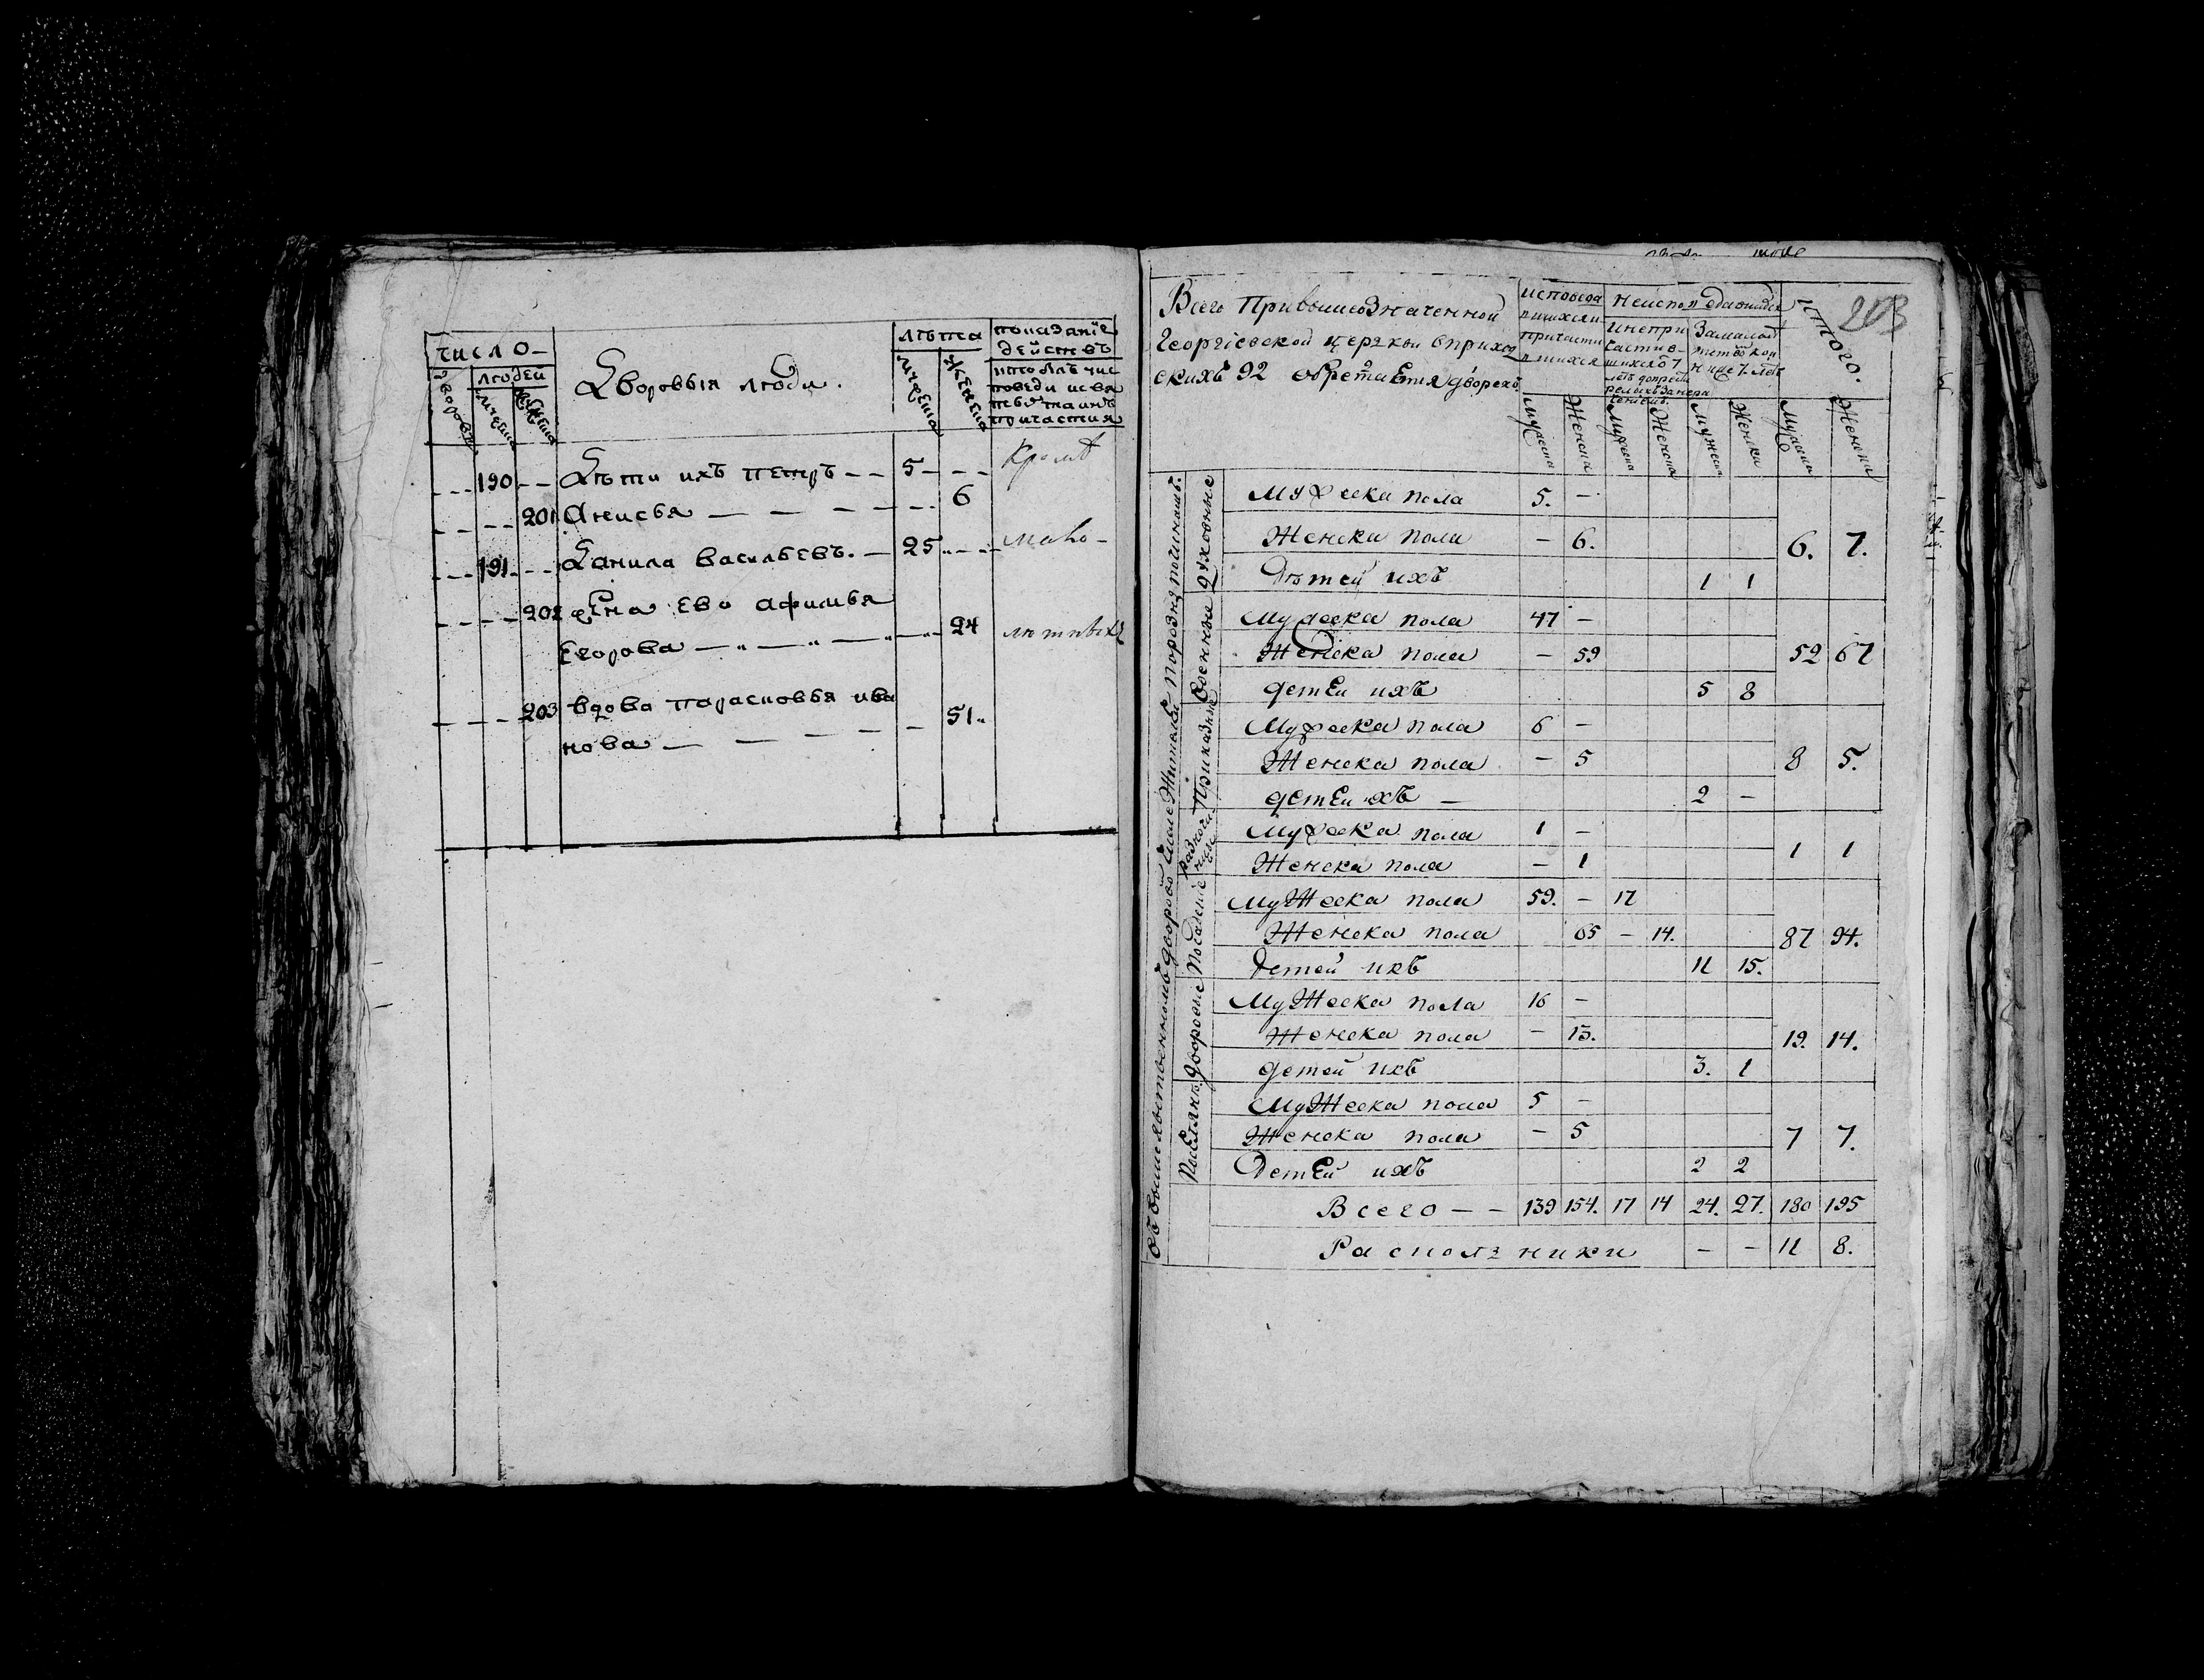 число
людей
дворовъ
Дворовыя люди.
лѣта
мужеска
женска
показание
действъ
кто былъ у ис
поведи и свя
тыхъ таинъ
причастия
190 Дѣти ихъ петръ 5
201 Анисья 6
191 Данила васильевъ. 25
202 жена ево афимья
Егорова 24
203 вдова парасковья ива
нова 51
203
Всего при вышеозначенной
Георгіевской церкви в приход
скихъ 92 обретается дворехъ
исповеда
вшихся и
причасти
вшихся
неисповедавшихся
и непри
частив
шихся от 7
За малолѣт
ством кои
ниже 7. летъ
итого.
Мужеска Женска Мужеска Женска Мужеска Женска Мужеска Женска
Духовные
Мужеска пола 5. —
Женска пола — 6. 6. 7.
Дѣтей ихъ 1 1
Военные
Мужеска пола 47 —
Женска пола — 59 52 67
детей ихъ 5 8
Приказные
Мужеска пола 6 —
Женска пола — 5 8 5.
детей ихъ — 2 —
Разночинцы
Мужеска пола 1 —
Женска пола — 1 1 1
Посадские
Мужеска пола 59. — 17
Женска пола 65 — 14. 87 94.
Детей ихъ 11 15.
Дворовые
Мужеска пола 16 —
Женска пола — 13. 19. 14.
детей ихъ 3. 1
Поселянъ
Мужеска пола 5 —
Женска пола — 5 7 7.
Детей ихъ 2 2
Всего — — 139 154. 17 14 24. 27. 180 195
Раскольники — — 11 8.